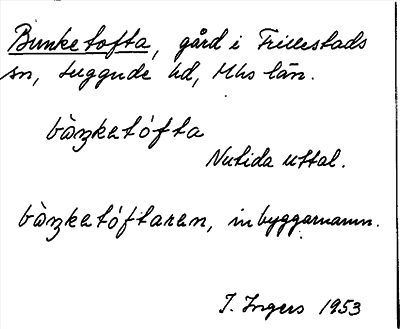 Bunketofta, gård i Frillestads
sn, Luggude hd, Mhs län.
bòŋketófta
Nutida uttal.
bòŋketóftaren, inbyggarnamn.
I. Ingers 1953